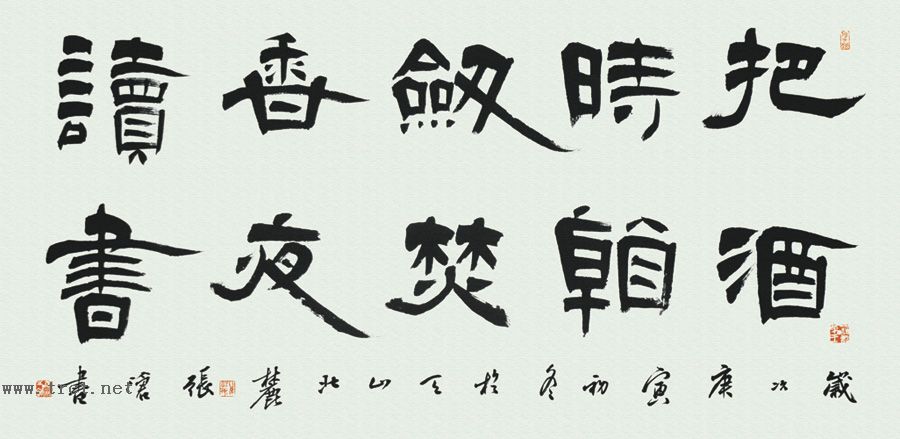 把酒
時看
劔焚
香夜
讀書
歲次庚寅初冬於天山北麓張書